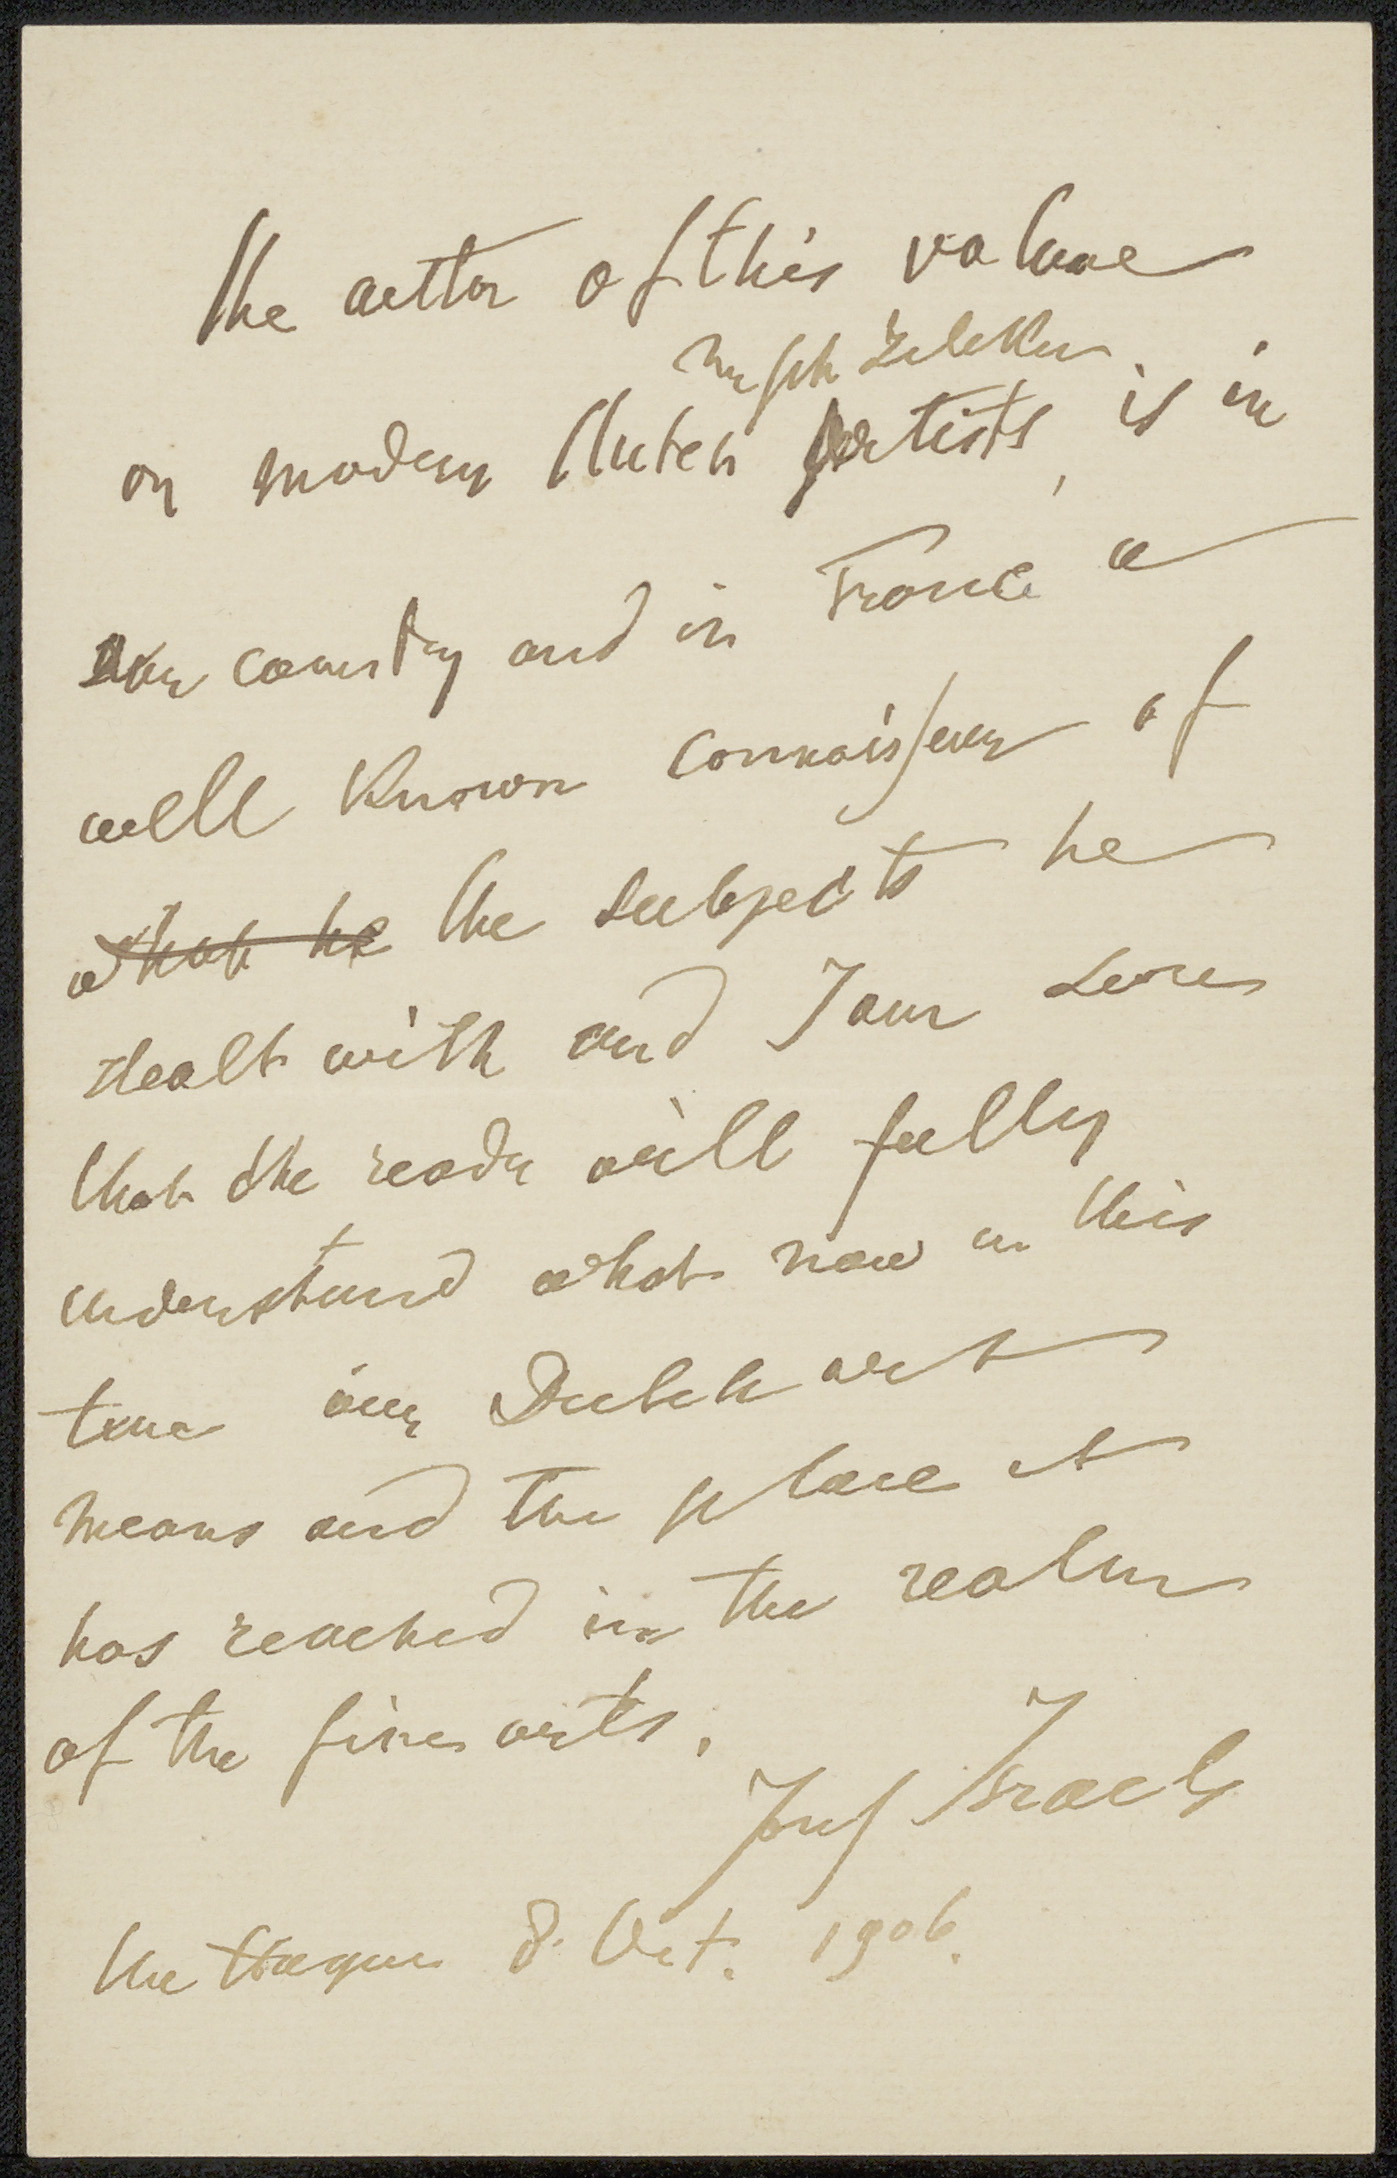 The author of this volume
Mr Ph Zilcken
on modern Dutch Artists, is in
our country and in France a
well known connaisseur of
what he the subjects he
dealt with and I am sure
that the reader will fully
understand what now in this
time our Dutch art
means and the place it
has reached in the realm
of the fine arts.
Jozef Israels
the Hague 8. Oct. 1906.